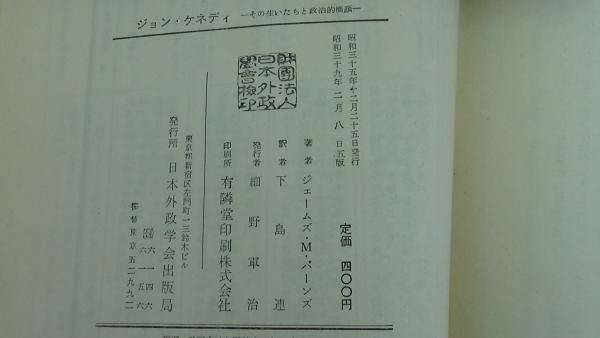 ジョン・ケネディ ―その生いたちと政治的横顔―
昭和三十五年十二月二十五日発行
昭和三十九年二月八日五版
定価 四〇〇円
著者 ジェームズ・M・バーンズ
訳者 下島連
発行者 細野軍治
印刷所 有隣堂印刷株式会社
財團法人
日本外政
學會検印
東京都新宿区左門町一三鈴木ビル
発行所 日本外政学会出版局
振替東京五二九九二